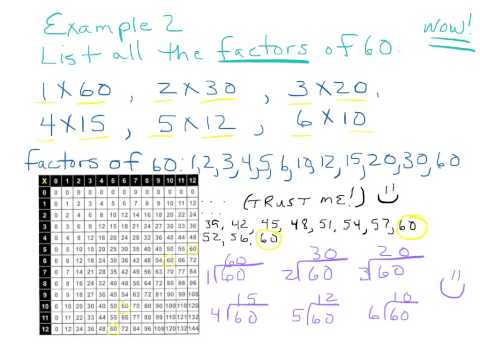 Example 2
Wow!
List all the factors of 60
1 X 60, 2 X 30, 3 X 20,
4 X 15, 5 X 12, 6 X 10
factors of 60: 1, 2, 3, 4, 5, 6, 10, 12, 15, 20, 30, 60
X 0 1 2 3 4 5 6 7 8 9 10 11 12
0 0 0 0 0 0 0 0 0 0 0 0 0 0
1 0 1 2 3 4 5 6 7 8 9 10 11 12
2 0 2 4 6 8 10 12 14 16 18 20 22 24
3 0 3 6 9 12 15 18 21 24 27 30 33 36
4 0 4 8 12 16 20 24 28 32 36 40 44 48
5 0 5 10 15 20 25 30 35 40 45 50 55 60
6 0 6 12 18 24 30 36 42 48 54 60 66 72
7 0 7 14 21 28 35 42 49 56 63 70 77 84
8 0 8 16 24 32 40 48 56 64 72 80 88 96
9 0 9 18 27 36 45 54 63 72 81 90 99 108
10 0 10 20 30 40 50 60 70 80 90 100 110 120
11 0 11 22 33 44 55 66 77 88 99 110 121 132
12 0 12 24 36 48 60 72 84 96 108 120 132 144
(TRUST ME!)
39, 42, 45, 48, 51, 54, 57, 60
52, 56, 60
60 30 20
1 60 2 60 3 60
15 12 10
4 60 5 60 6 60